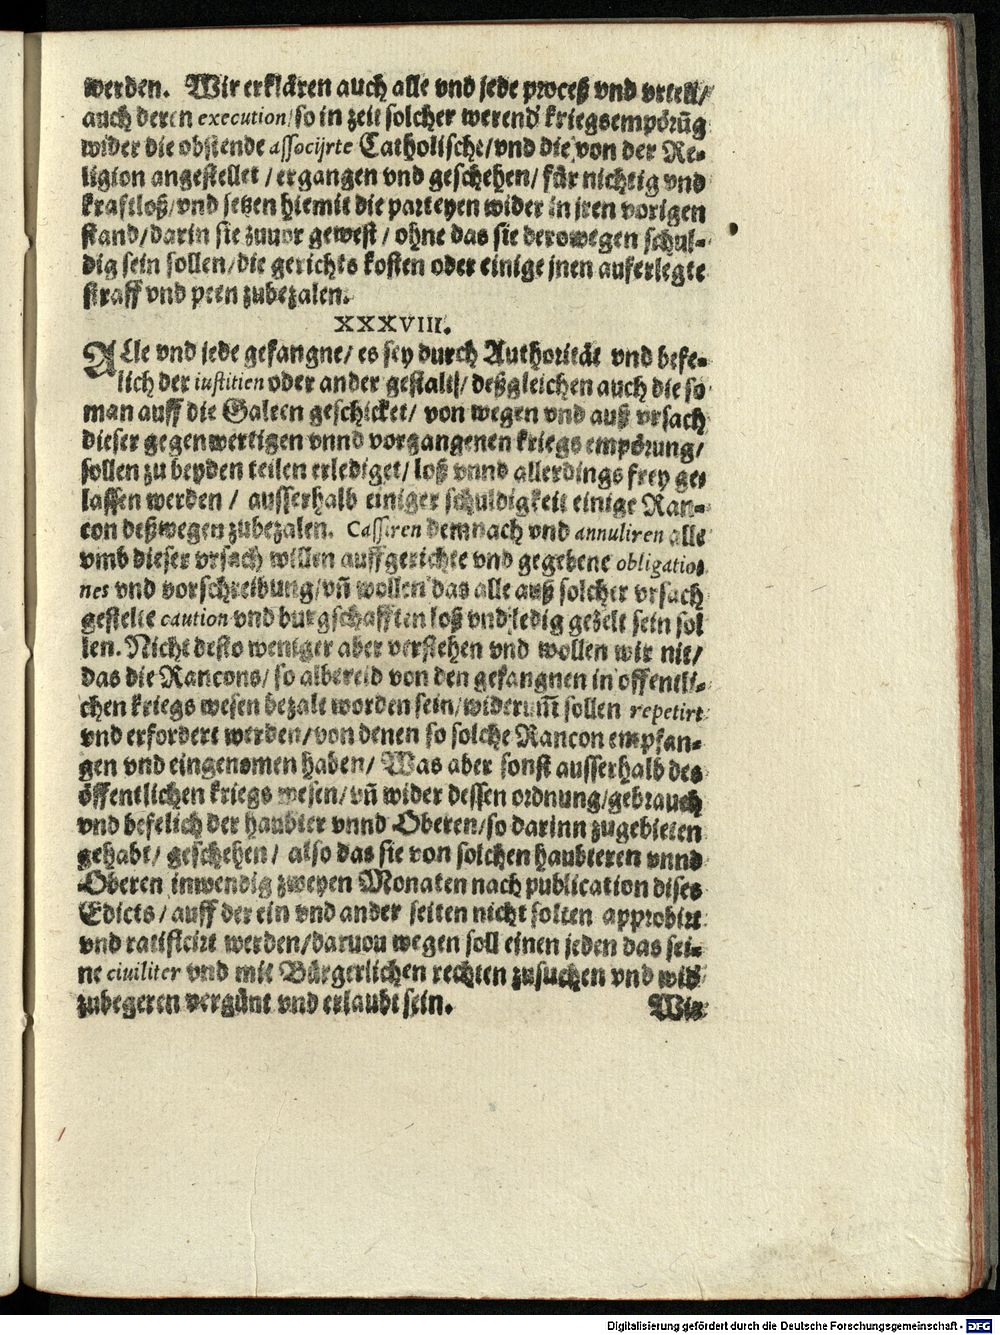 werden. Wir erklären auch alle vnd jede proceß vnd vrteil/
auch deren execution/ so in zeit solcher werend' kriegsempörūg
wider die obstende associjrte Catholische/ vnd die von der Re-
ligion angestellet / ergangen vnd geschehen/ für nichtig vnd
krafftloß/ vnd setzen hiemit die parteyen wider in jren vorigen
stand/ darin sie zuuor gewest / ohne das sie derowegen schul-
dig sein sollen/ die gerichts kosten oder einige jnen auferlegte
straff vnd peen zubezalen.
XXXVIII.
ALle vnd jede gefangne/ es sey durch Authoritát vnd befe-
lich der iustitien oder ander gestalt/ deßgleichen auch die so
man auff die Galeen geschicket/ von wegen vnd auß vrsach
dieser gegenwertigen vnnd vorgangenen kriegs empörung/
sollen zu beyden teilen erlediget/ loß vnnd allerdings frey ge-
lassen werden / ausserhalb einiger schuldigkeit einige Ran-
con deßwegen zubezalen. Cassiren demnach vnd annuliren alle
vmb dieser vrsach willen auffgerichte vnd gegebene obligatio-
nes vnd vorschreibung/ vn̄ wollen das alle auß solcher vrsach
gestelte caution vnd burgschafften loß vnd ledig gezelt sein sol
len. Nicht desto weniger aber verstehen vnd wollen wir nit/
das die Rancons/ so albereid von den gefangnen in offentli-
chen kriegs wesen bezalt worden sein/ widerum̄ sollen repetirt
vnd erfordert werden/ von denen so solche Rancon empfan-
gen vnd eingenomen haben/ Was aber sonst ausserhalb des
öffentlichen kriegs wesen/ vn̄ wider dessen ordnung/ gebrauch
vnd befelich der haubter vnnd Oberen/ so darinn zugebieten
gehabt/ geschehen/ also das sie von solchen haubteren vnnd
Oberen inwendig zweyen Monaten nach publication dises
Edicts/ auff der ein vnd ander seiten nicht solten approbirt
vnd ratificirt werden/ daruou wegen soll einen jeden das sei-
ne ciuiliter vnd mit Bürgerlichen rechten zusuchen vnd wid'
zubegeren vergünt vnd erlaubt sein.
Wir
Digitalisierung gefördert durch die Deutsche Forschungsgemeinschaft - DFG